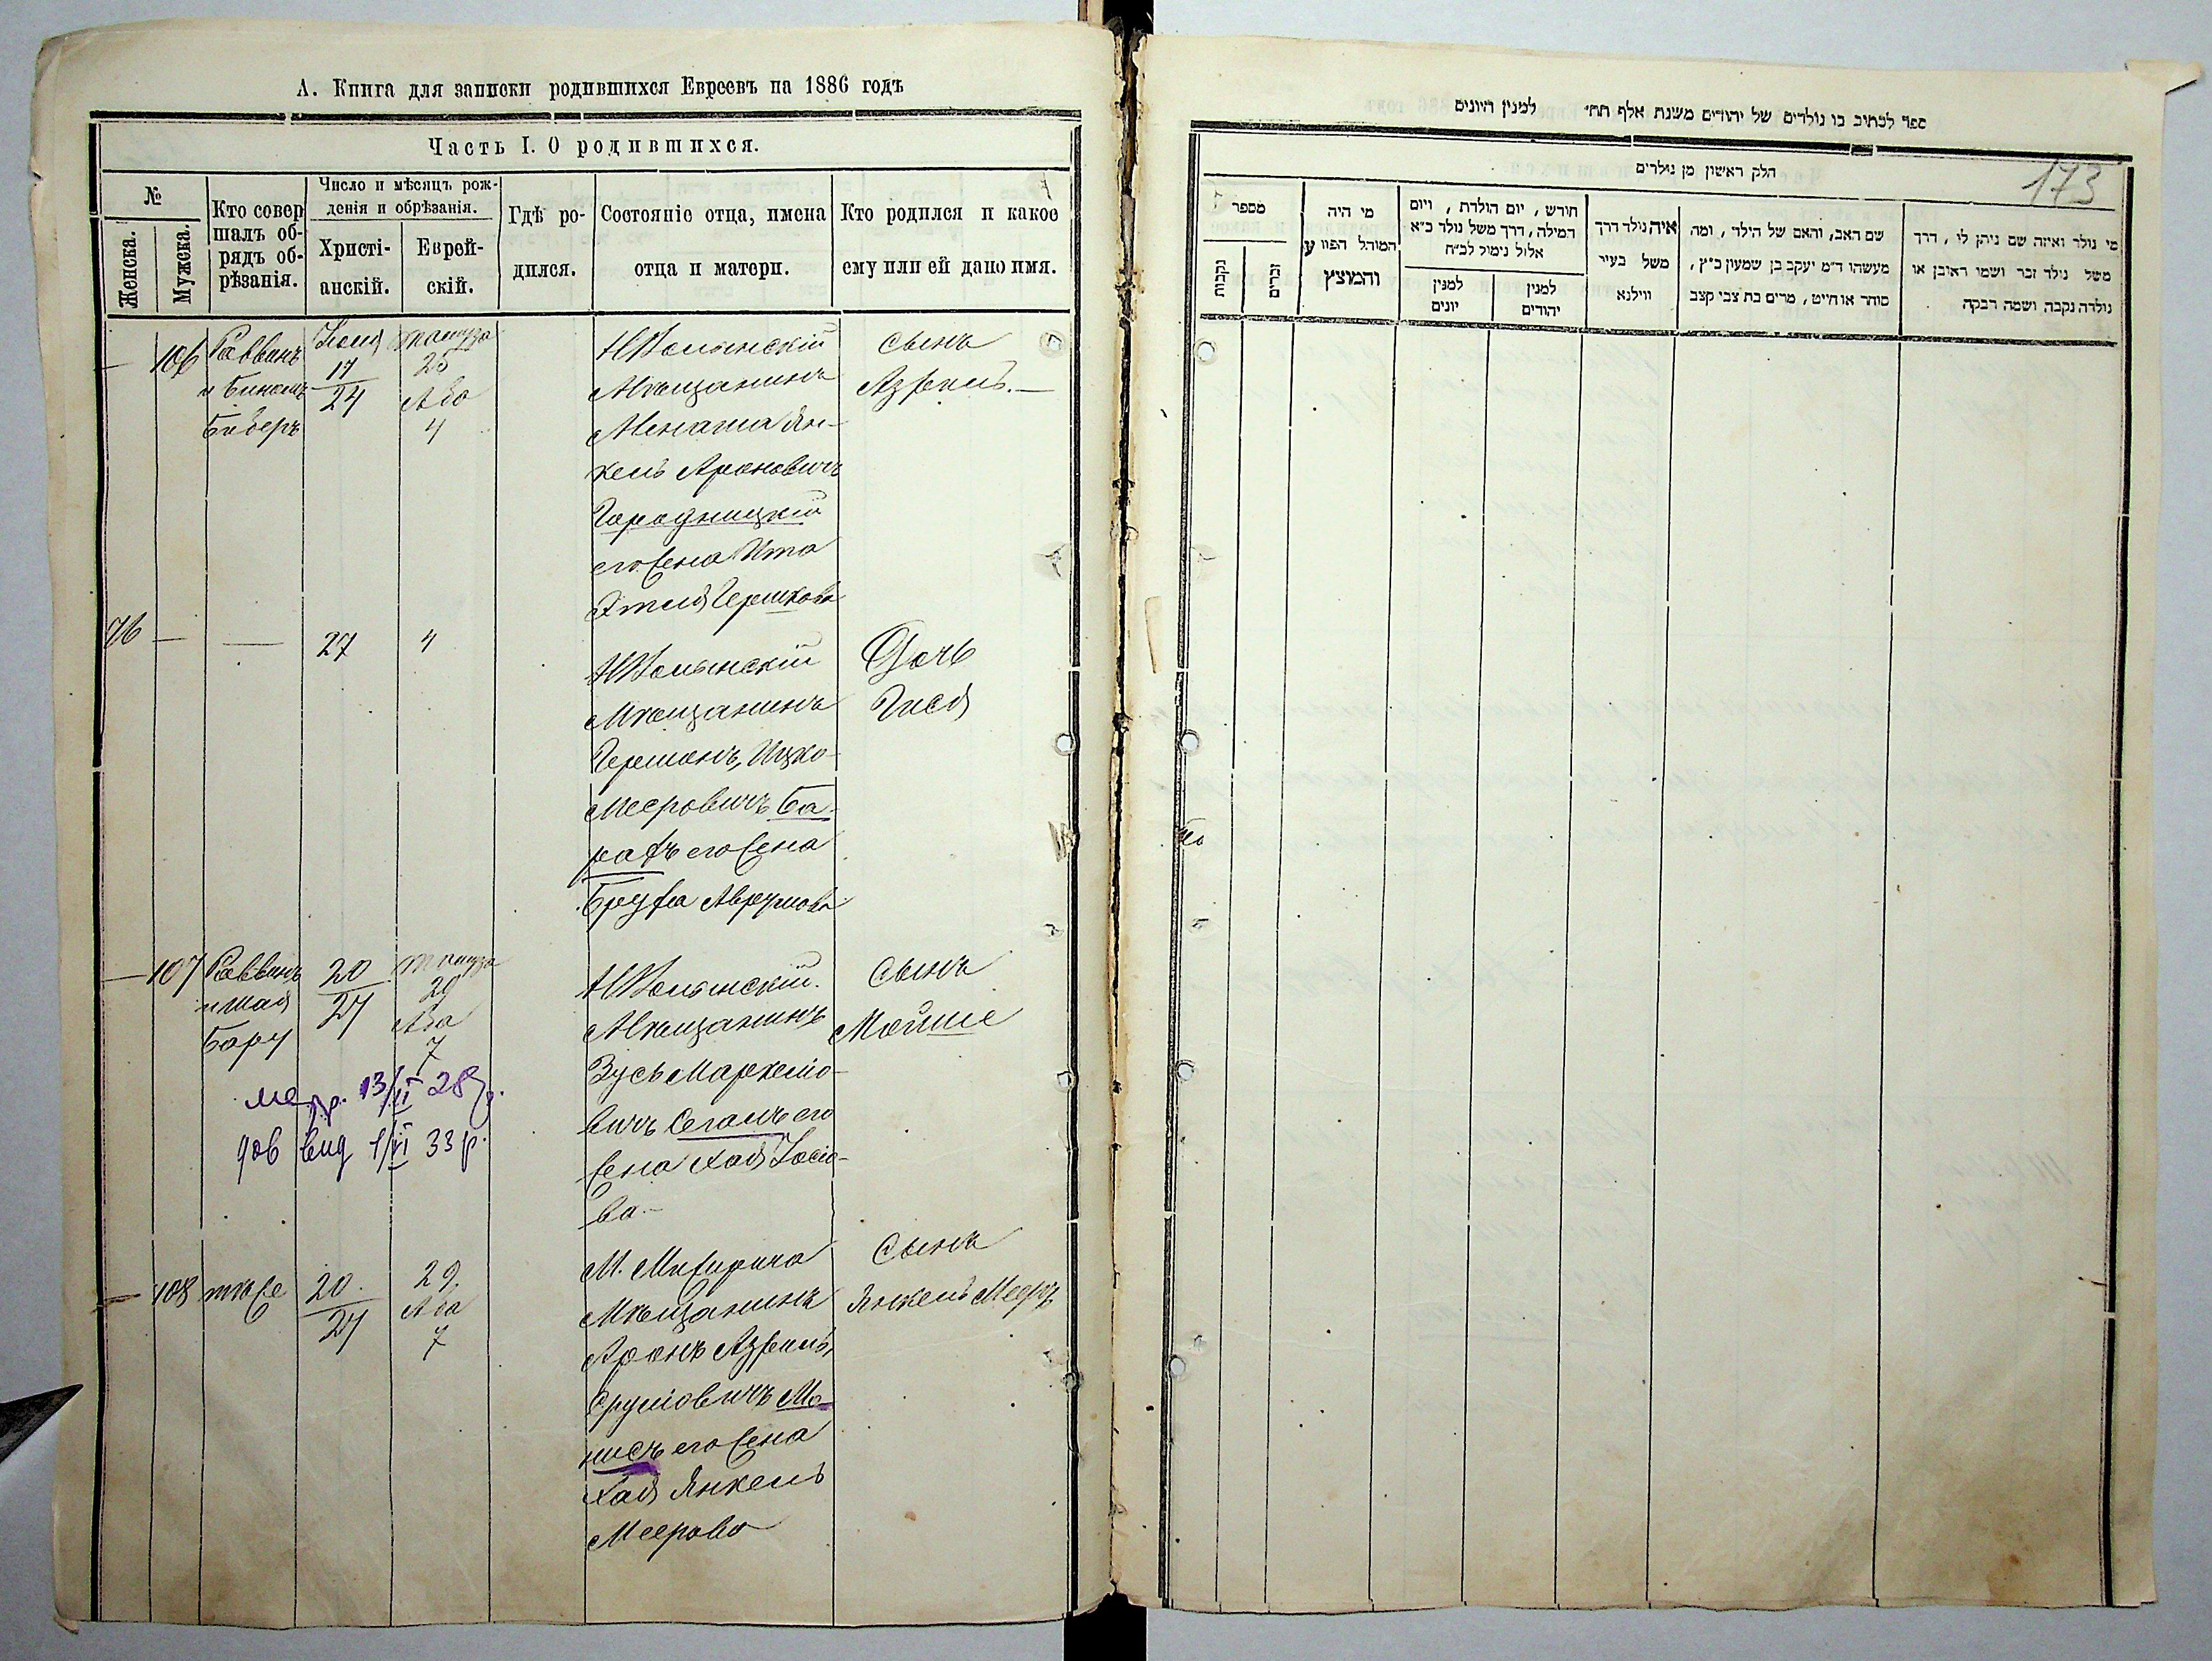 А. Книга для записки родившихся Евреевъ на 1886 годъ
Часть I. О родившихся.
№
Женска.
Мужска.
Кто совер
шалъ об-
рядъ об-
рѣзанія.
Число и мѣсяцъ рож-
денія и обрѣзанія.
Христі-
анскій.
Еврей-
скій.
Гдѣ ро-
дился.
Состояніе отца, имена
отца и матери.
Кто родился и какое
ему или ей дано имя.
— 106 Раввинъ
и
Биберъ
Іюля
17
24
Тамуза
25
Аво
4
НВолынскій
Мѣщанинъ
Менаша Ян-
кель Ароновичъ
Городницкій
его жена Ита
Этля Гершкова
сынъ
Азріиль.—
76 — — 27 4
НВолынскій
Мѣщанинъ
Гершонъ, Ицко-
Мееровичъ Ба-
рахъ его жена
Аврумова
Дочь
Гися
— 107 Раввинъ
20
27
Тамуза
29
Ава
7
НВолынскій.
Мѣщанинъ
Зусь
вичъ Сегалъ его
жена Хая Іосіо-
ва.—
сынъ
Мойше
13/II 28 г.
вид 1/VI 33 р.
— 108 тоже
20.
27
29.
Ава
7
Мѣщанинъ
Аронъ Азріиль,
Сруліовичъ
его жена
Хая Янкель
Меерова
Сынъ
Янкель Мееръ
173
ספר לכתוב בו נולדים של יהודים משנת אלף תתי למנין היונים
חלק ראשון מן נולדים
מספר
נקבות
זכרים
מי היה
המוהל הפורע
והמוצץ
חודש, יום הולדת, ויום
המילה, דרך משל נולד כ״א
אלול נימול לכ״ח
למנין
יונים
למנין
יהודים
איה נולד דרך
משל בעיר
ווילנא
שם האב, והאם של הילד, ומה
מעשהו ד״מ יעקב בן שמעון כ״ץ,
סוחר או חייט, מרים בת צבי קצב
מי נולד ואיזה שם ניתן לו, דרך
משל נולד זכר ושמו ראובן או
נולדה נקבה ושמה רבקה